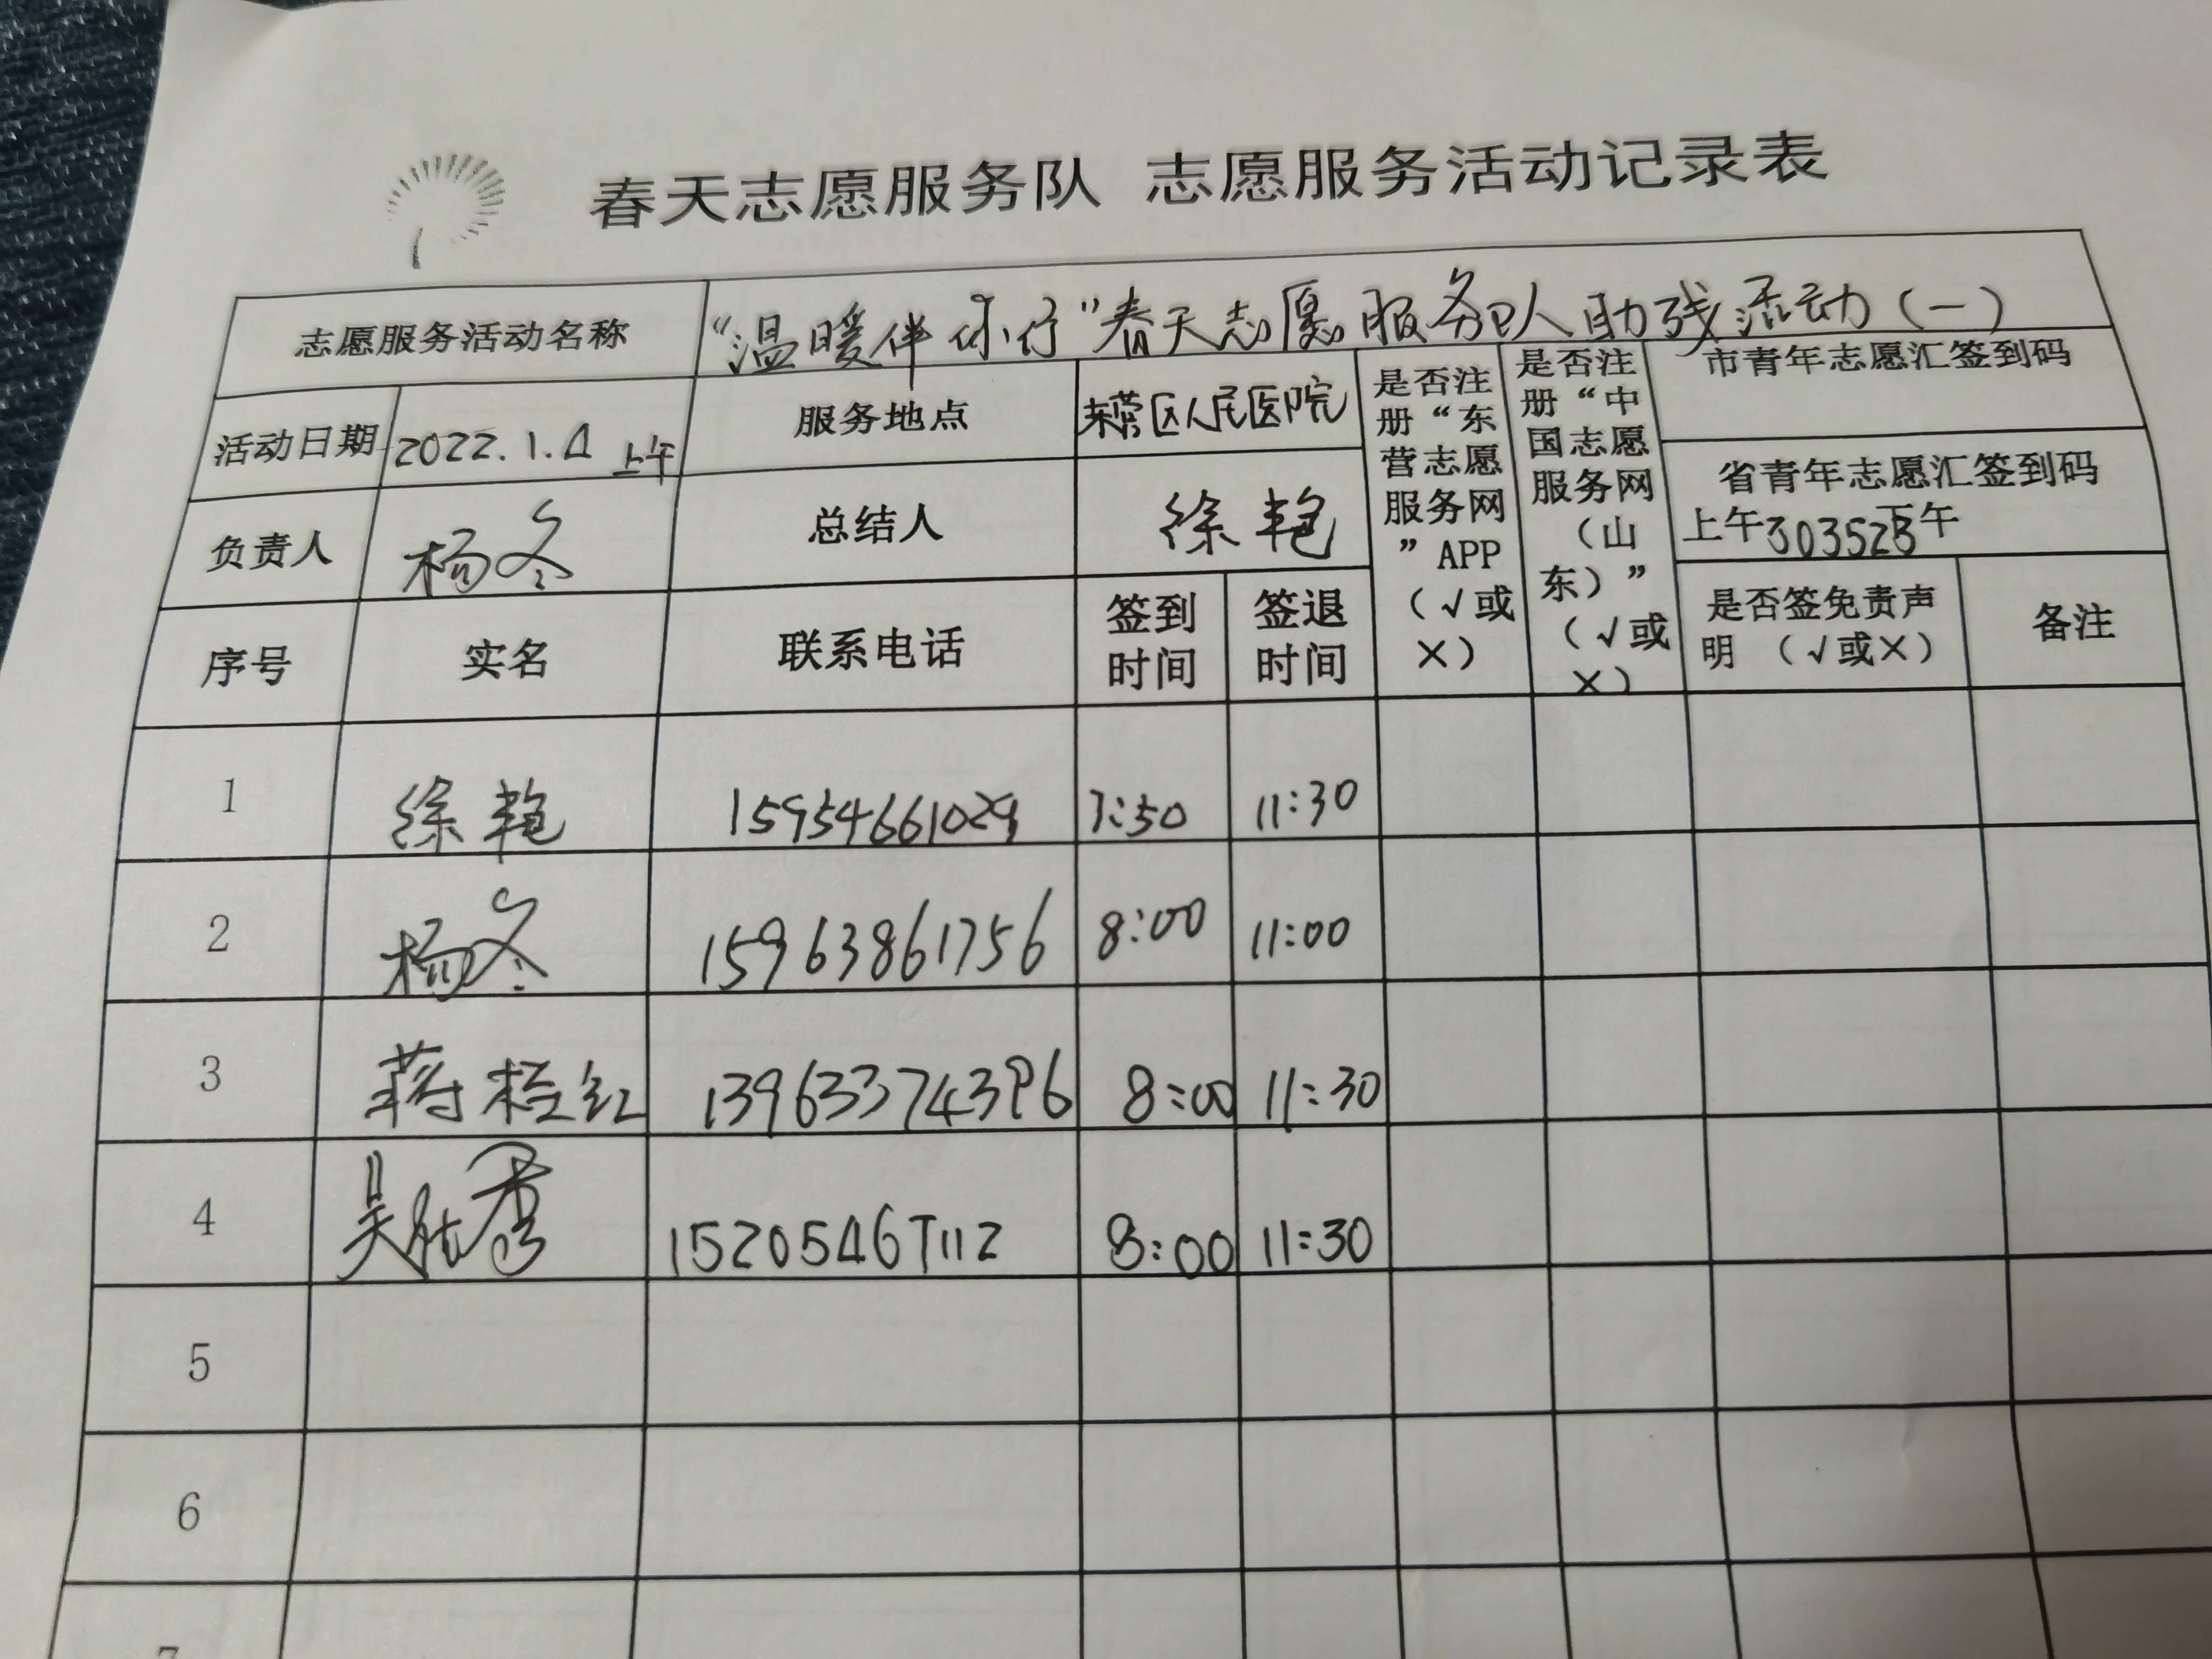 春天志愿服务队 志愿服务活动记录表
志愿服务活动名称 “温暖伴你行”春天志愿服务队助残活动(一)
活动日期 2022.1.4 上午 服务地点 东营区人民医院 是否注册“东营志愿服务网”APP(√或×) 是否注册“中国志愿服务网(山东)”(√或×) 市青年志愿汇签到码
省青年志愿汇签到码
上午303523 下午
负责人 杨冬 总结人 徐艳
序号 实名 联系电话 签到时间 签退时间 是否签免责声明 (√或×) 备注
1 徐艳 15954661029 7:50 11:30
2 杨冬 15963861756 8:00 11:00
3 蒋桂红 13963374396 8:00 11:30
4 吴秀 15205467112 8:00 11:30
5
6
7